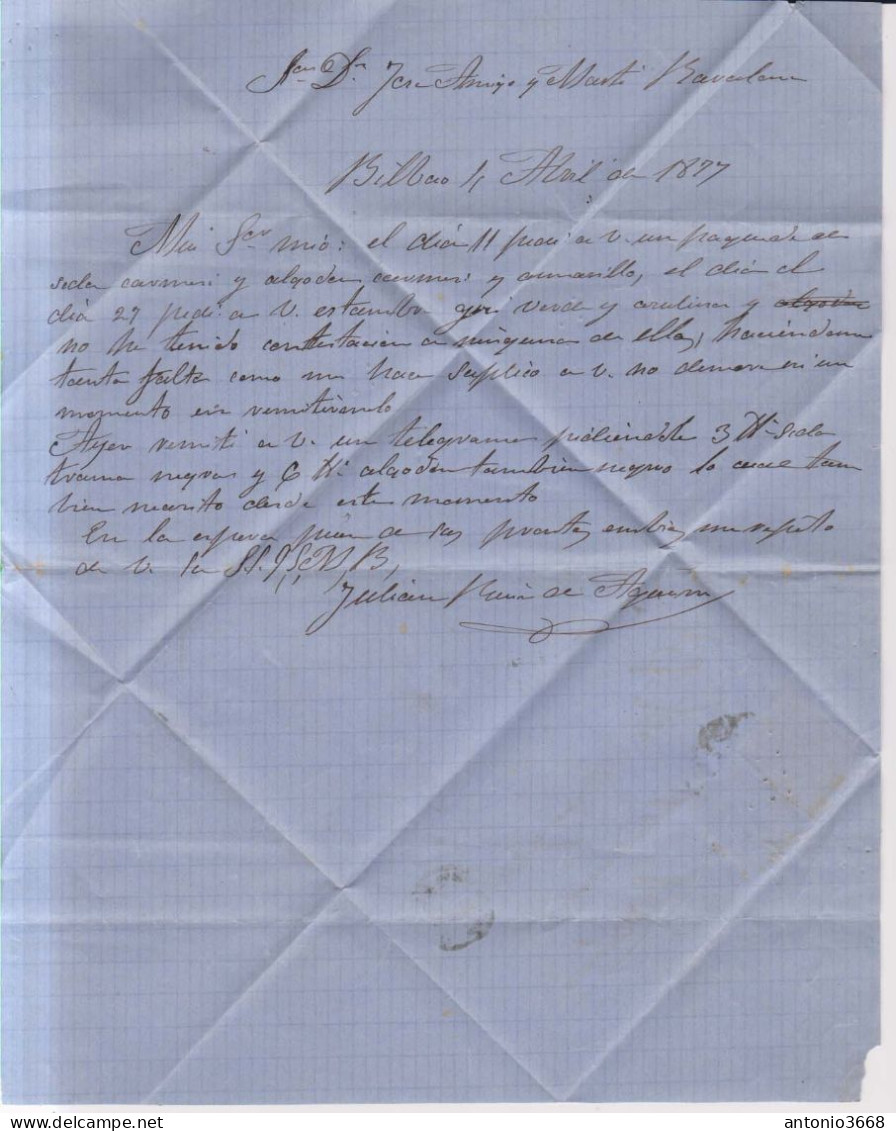 Sor Dn Jose Amigo y Marti Barcelona
Bilbao 4 Abril de 1877
Mui Sor mio: el dia 11 pedi a V. un paquete de
seda carmesi y algodon carmesi y amarillo, el dia el
dia 27 pedi a V. estambre gris verde y y algodon
no he tenido contestacion a ninguna de ellas, haciendome
tanta falta como me hace suplico a V. no demore ni un
momento en remitirmelo
Ayer remiti a V. un telegrama pidiendole 3 seda
trama negra y 6 algodon tambien negro lo cual tam
bien necesito desde este momento
En la espera de sus prontos
de V. su S. S. Q. S. M. B.
Julian Ruiz de
antonio3668